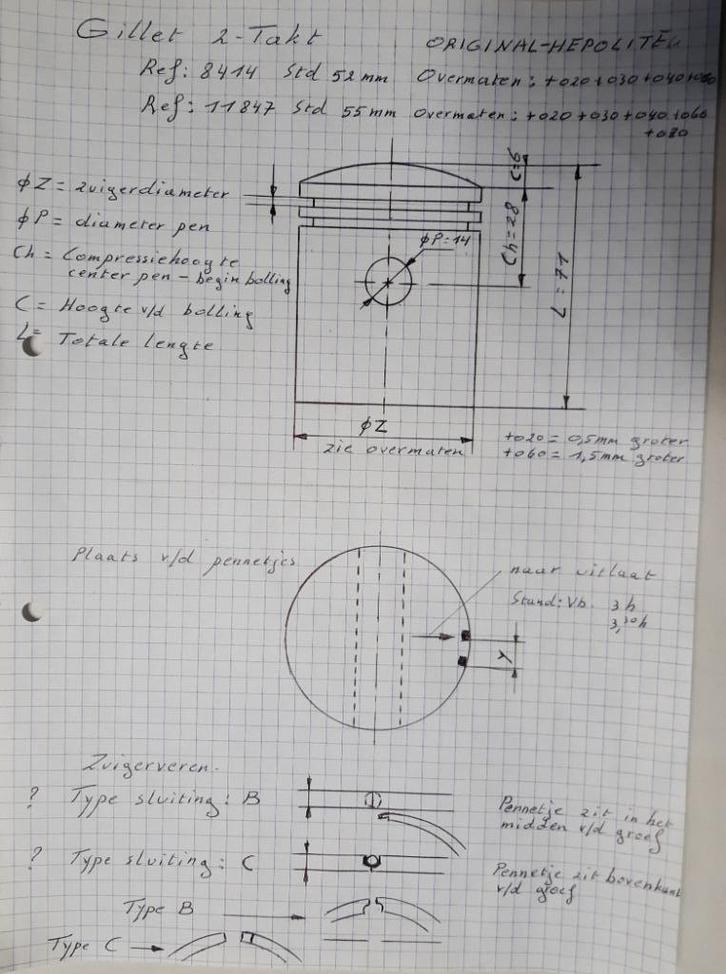 Gillet 2-Takt ORIGINAL-HEPOLITE
Ref: 8414 Std 52mm Overmaten: +020+030+040+060
Ref: 11847 Std 55mm Overmaten: +020+030+040+060
+080
C=6
Ch=28
L=71
ΦZ= zuigerdiameter
ΦP= diameter pen
Ch= Compressiehoogte
center pen - begin bolling
C= Hoogte v/d bolling
L= Totale lengte
ΦP=14
ΦZ
zie overmaten
+020= 0,5mm groter
+060= 1,5mm groter
Plaats v/d pennetjes
naar uitlaat
Stand: Vb. 3h
3,30h
Y
Zuigerveren.
? Type sluiting: B
Pennetje zit in het
midden v/d groef
? Type sluiting: C
Pennetje zit bovenkant
v/d groef
Type B
Type C